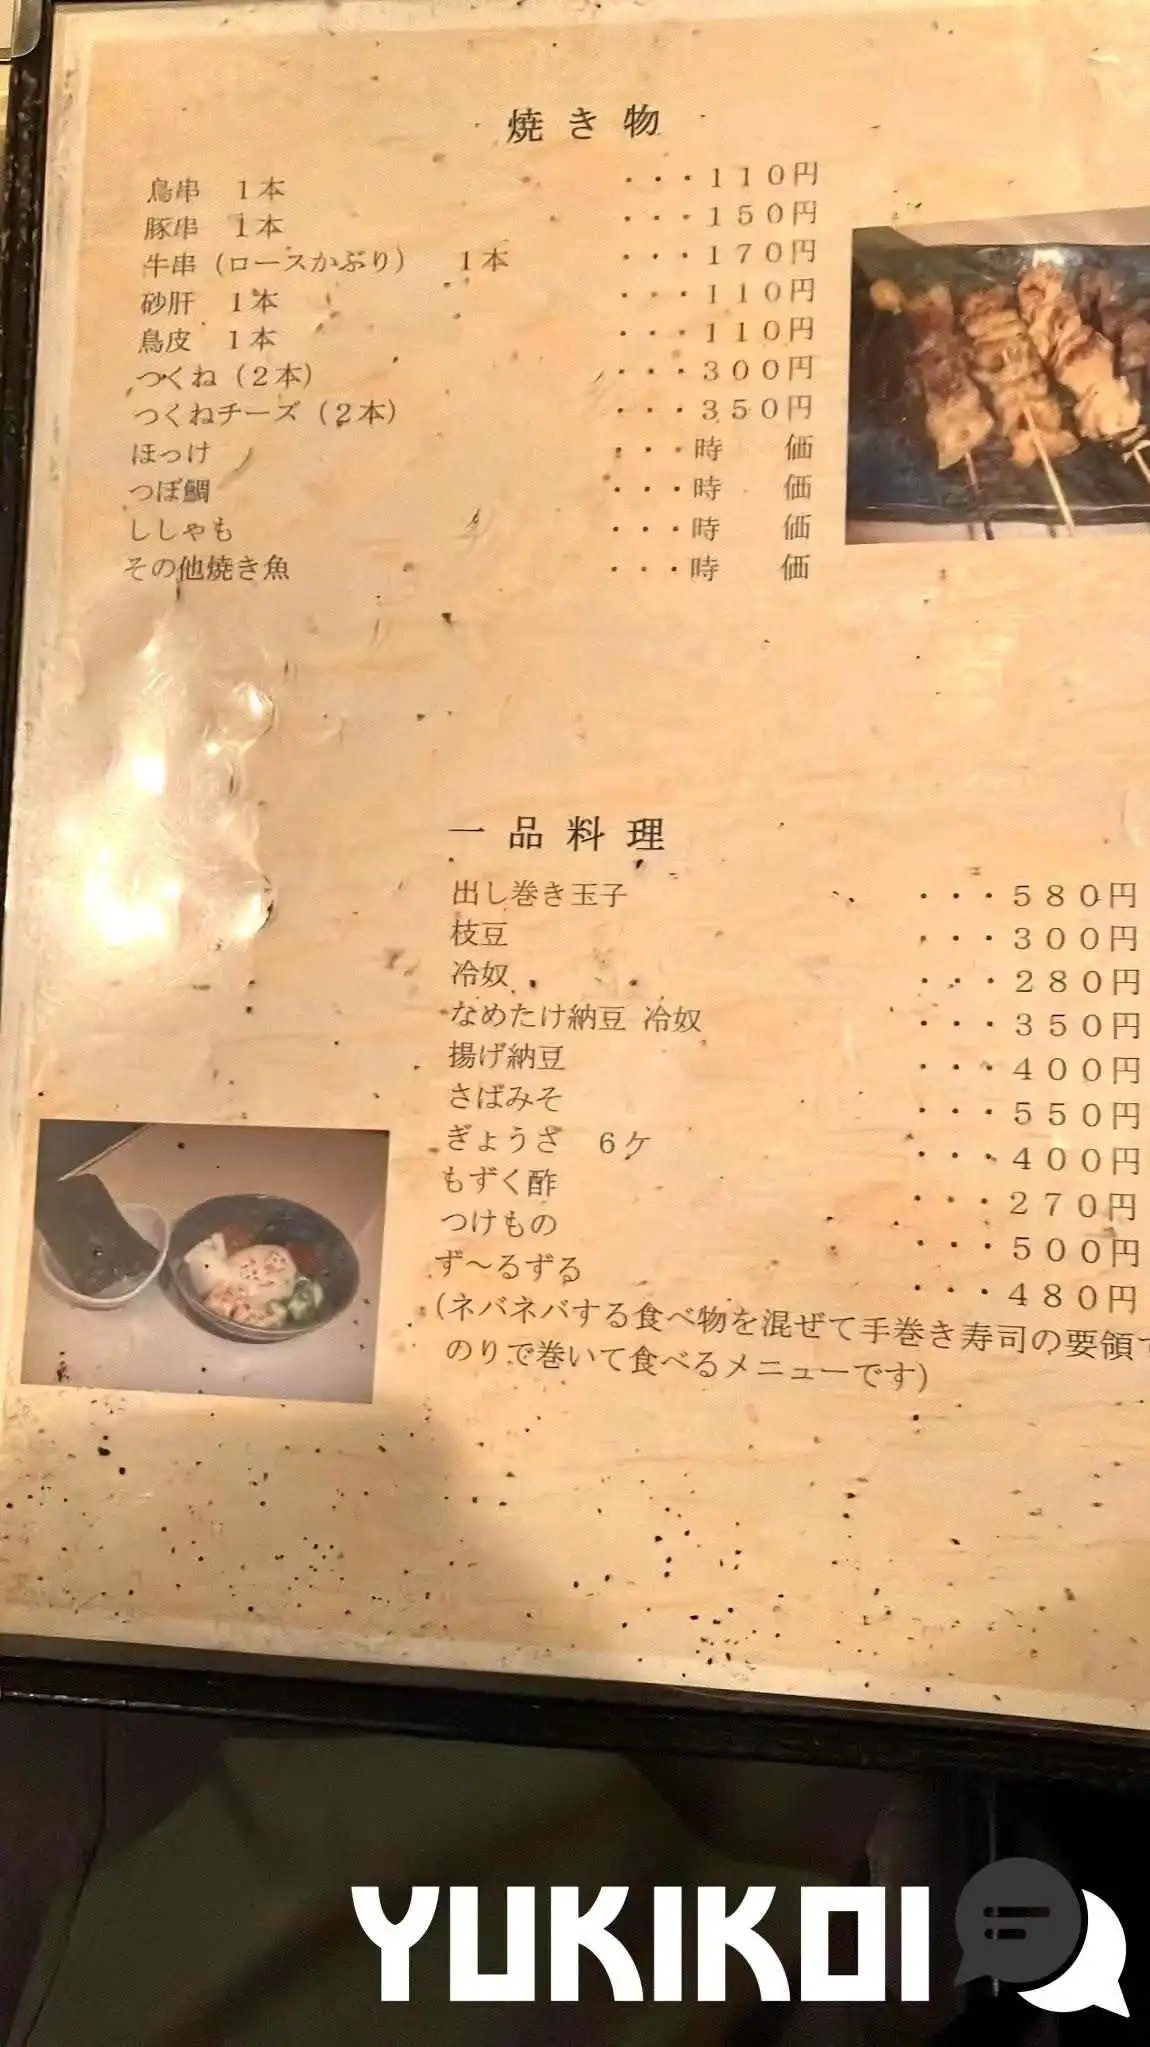 焼き物
鳥串 １本 ・・・１１０円
豚串 １本 ・・・１５０円
牛串（ロースかぶり） １本 ・・・１７０円
砂肝 １本 ・・・１１０円
鳥皮 １本 ・・・１１０円
つくね（２本） ・・・３００円
つくねチーズ（２本） ・・・３５０円
ほっけ ・・・時 価
つぼ鯛 ・・・時 価
ししゃも ・・・時 価
その他焼き魚 ・・・時 価
一品料理
出し巻き玉子 ・・・５８０円
枝豆 ・・・３００円
冷奴 ・・・２８０円
なめたけ納豆 冷奴 ・・・３５０円
揚げ納豆 ・・・４００円
さばみそ ・・・５５０円
ぎょうざ ６ケ ・・・４００円
もずく酢 ・・・２７０円
つけもの ・・・５００円
ず～るずる ・・・４８０円
（ネバネバする食べ物を混ぜて手巻き寿司の要領で
のりで巻いて食べるメニューです）
YUKIKOI